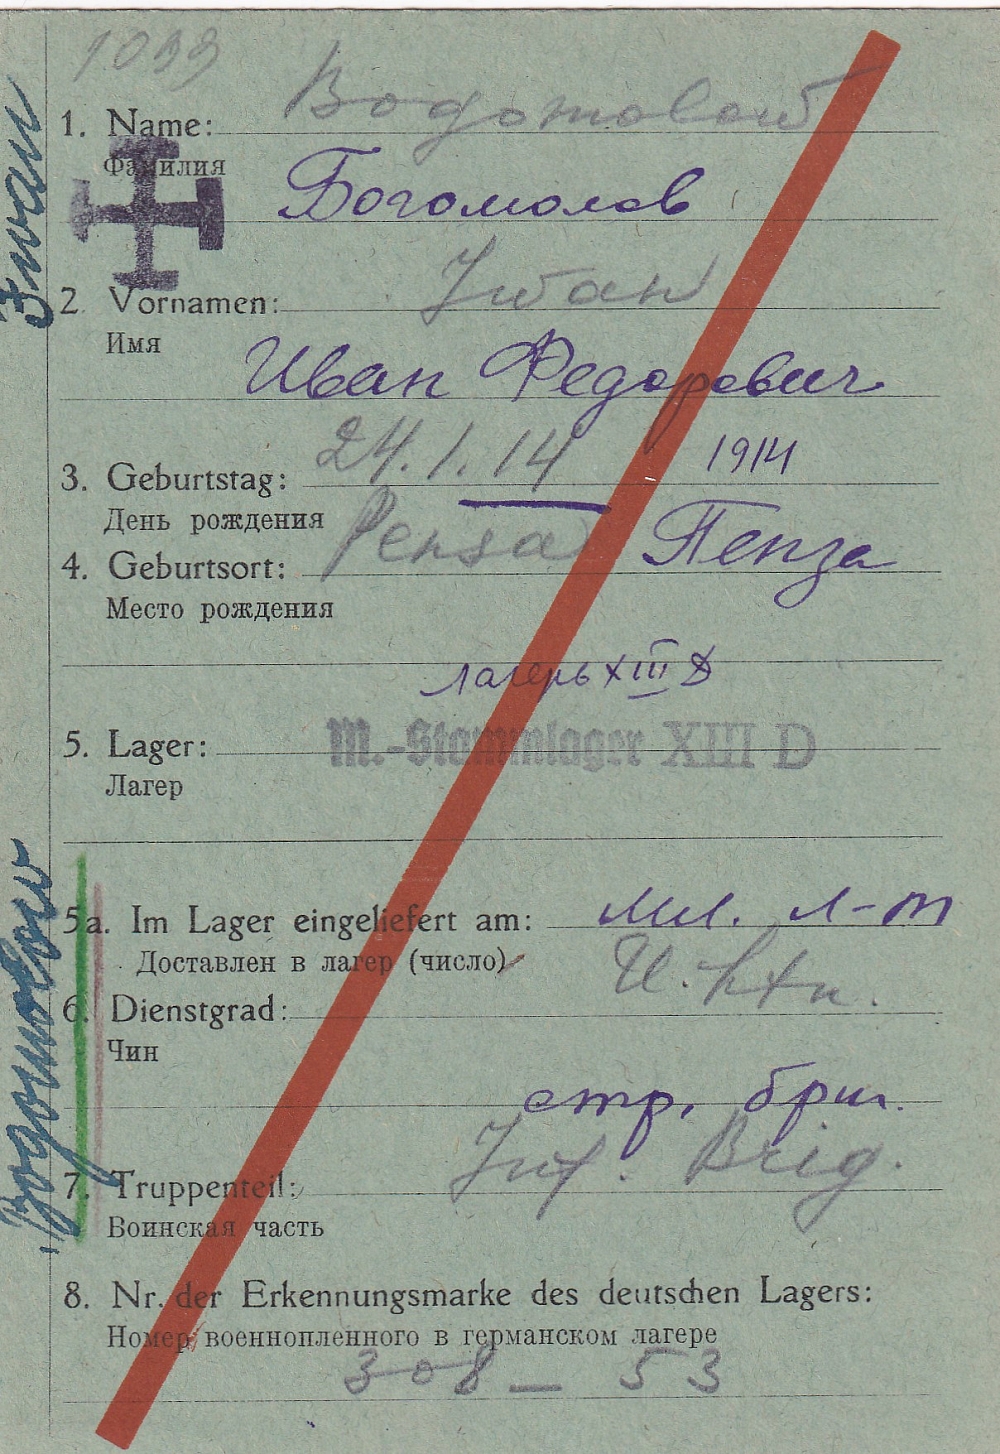 1099
1. Name: Bogomolow
Фамилия
Богомолов
2 Vornamen: Iwan
Имя
Иван Федорович
3. Geburtstag: 24.1.14 1914
День рождения
4. Geburtsort: Pensa Пенза
Место рождения
лагерь XIII D
5. Lager: M.-Stammlager XIII D
Лагер
5a. Im Lager eingeliefert am: мл. л-т
Доставлен в лагер (число)
6. Dienstgrad: U. Ltn.
Чин
стр. бриг.
7. Truppenteil: Inf. Brig.
Воинская часть
8. Nr. der Erkennungsmarke des deutschen Lagers:
Номер военнопленного в германском лагере
308 — 53
Bogomolow Iwan